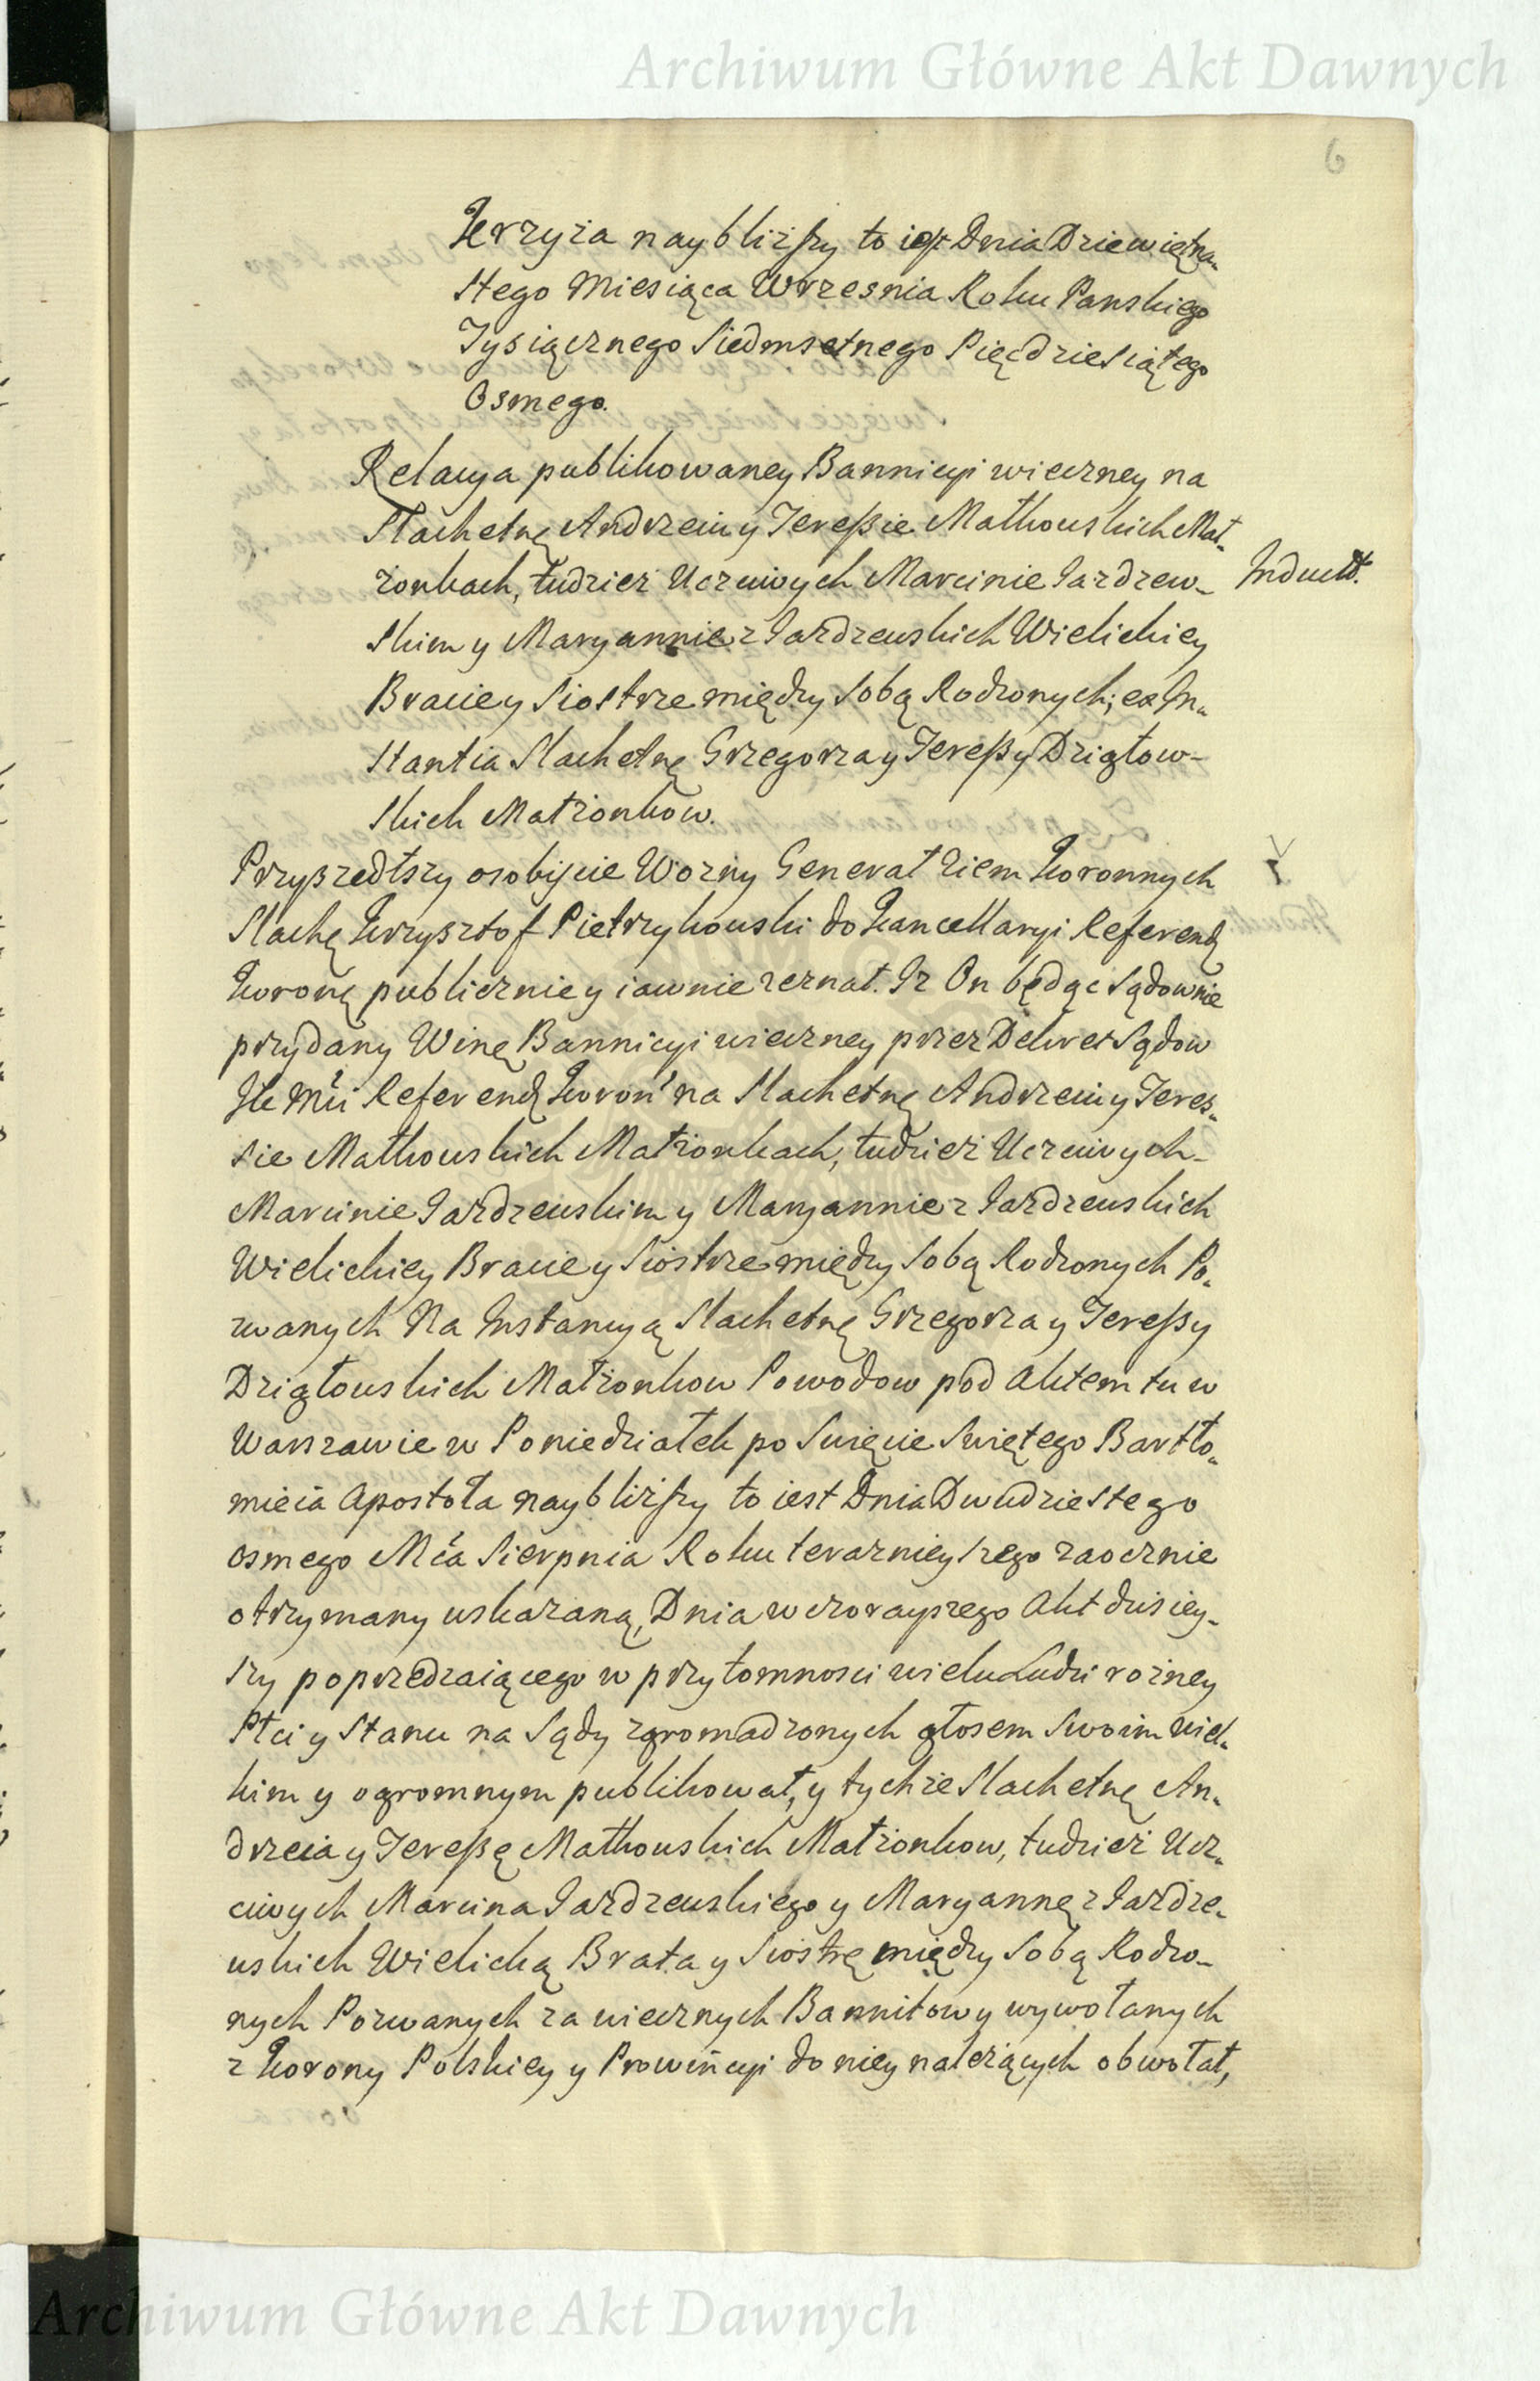 Archiwum Główne Akt Dawnych
6
Krzyża naybliższy to iest Dnia Dziewiętna-
stego Miesiąca Wrzesnia Roku Panskiego
Tysiącznego Siedmsetnego Pięcdziesiątego
Osmego.
Relacya publikowaney Bannicyi wieczney na
Slachetnę Andrzeiu y Teressie Małkowskich Mał-
żonkach, tudzież Uczciwych Marcinie Jazdzew-
Indukt.
skim y Maryannie z Jazdzewskich Wielickiey
Bracie y Siostrze między sobą Rodzonych, ex In-
stantia Slachetnę Grzegorza y Teressy Dzigłow-
skich Małżonkow.
Przyszedłszy osobiście Wozny Generał Ziem Koronnych
Slachę Krzysztof Pietrzykowski do Kancellaryi Referend
Koronę publicznie y iawnie zeznał. Iż On będąc sądownie
przydany Winę Bannicyi wieczney przez Dekret Sądow
Referend Koron na Slachetnę Andrzeiu y Teres-
sie Małkowskich Małżonkach, tudzież Uczciwych
Marcinie Jazdzewskim y Maryannie z Jazdzewskich
Wielickiey Bracie y Siostrze między sobą Rodzonych Po-
zwanych Na Instancyą Slachetnę Grzegorza y Teressy
Dzigłowskich Małżonkow Powodow pod Aktem tu w
Warszawie w Poniedziałek po Swięcie Swiętego Bartło-
mieia Apostoła naybliższy to iest Dnia Dwudziestego
osmego Mca Sierpnia Roku teraznieyszego zaocznie
otrzymany uskazaną, Dnia wczorayszego Akt dzisiey-
szy poprzedzaiącego w przytomnosci wielu Ludzi rożney
Płci y Stanu na Sądy zgromadzonych głosem swoim wiel-
kim y ogromnym publikował, y tychże Slachetnę An-
drzeia y Teressę Małkowskich Małżonkow, tudzież Ucz-
ciwych Marcina Jazdzewskiego y Maryannę z Jazdze-
wskich Wielicką Brata y Siostrę między sobą Rodzo-
nych Pozwanych za wiecznych Bannitow y wywołanych
z Korony Polskiey y Prowincyi do niey należących obwołał,
Archiwum Główne Akt Dawnych